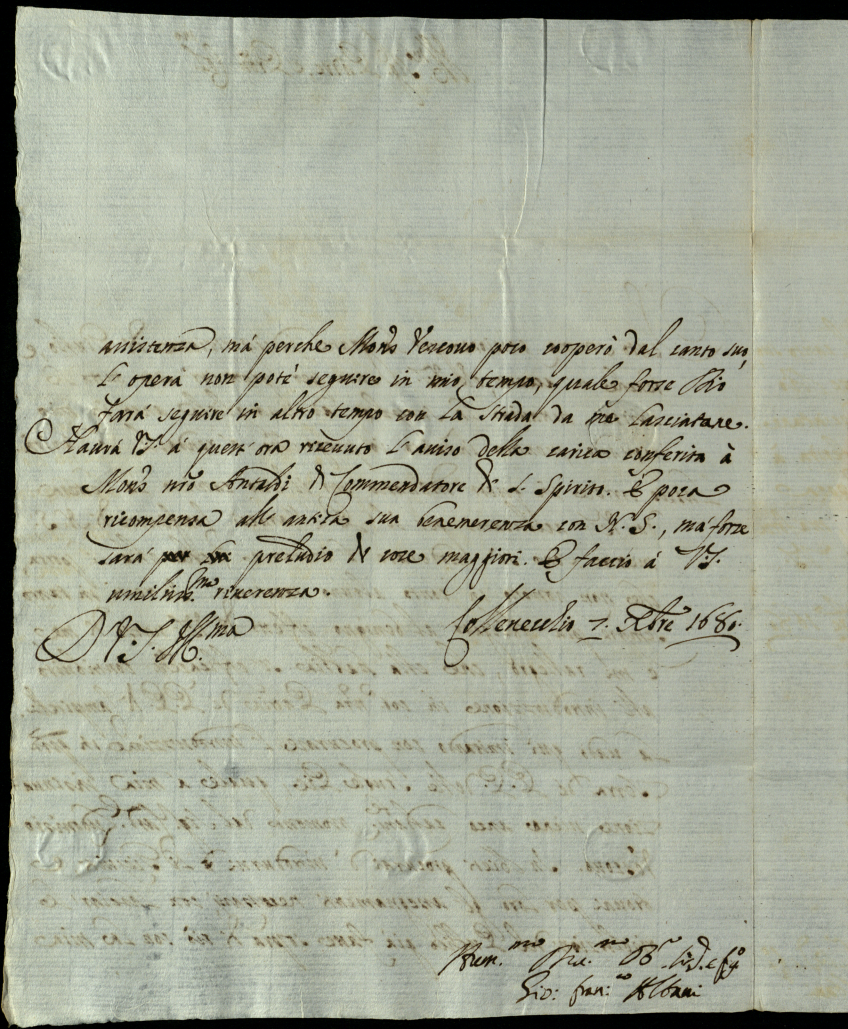 assistenza, mà perche Mons. Vescovo poco cooperò dal canto suo,
l'opera non potè seguire in mio tempo, quale forse Dio
farà seguire in altro tempo con la strada da me lasciatane.
Haurà V.S. à quest'ora riceuuto l'auiso della carica conferita à
Mons. nro Antaldi di Commendatore di S. Spirito. È poca
ricompensa all' antica sua benemerenza con N.S., mà forse
sarà preludio di cose maggiori. E faccio à V.S.
umiliss.ma riuerenza.
D V.S. Ill.ma Collevecchio 7. 1680.
Hum.mo
Gio: Fran.co Albani